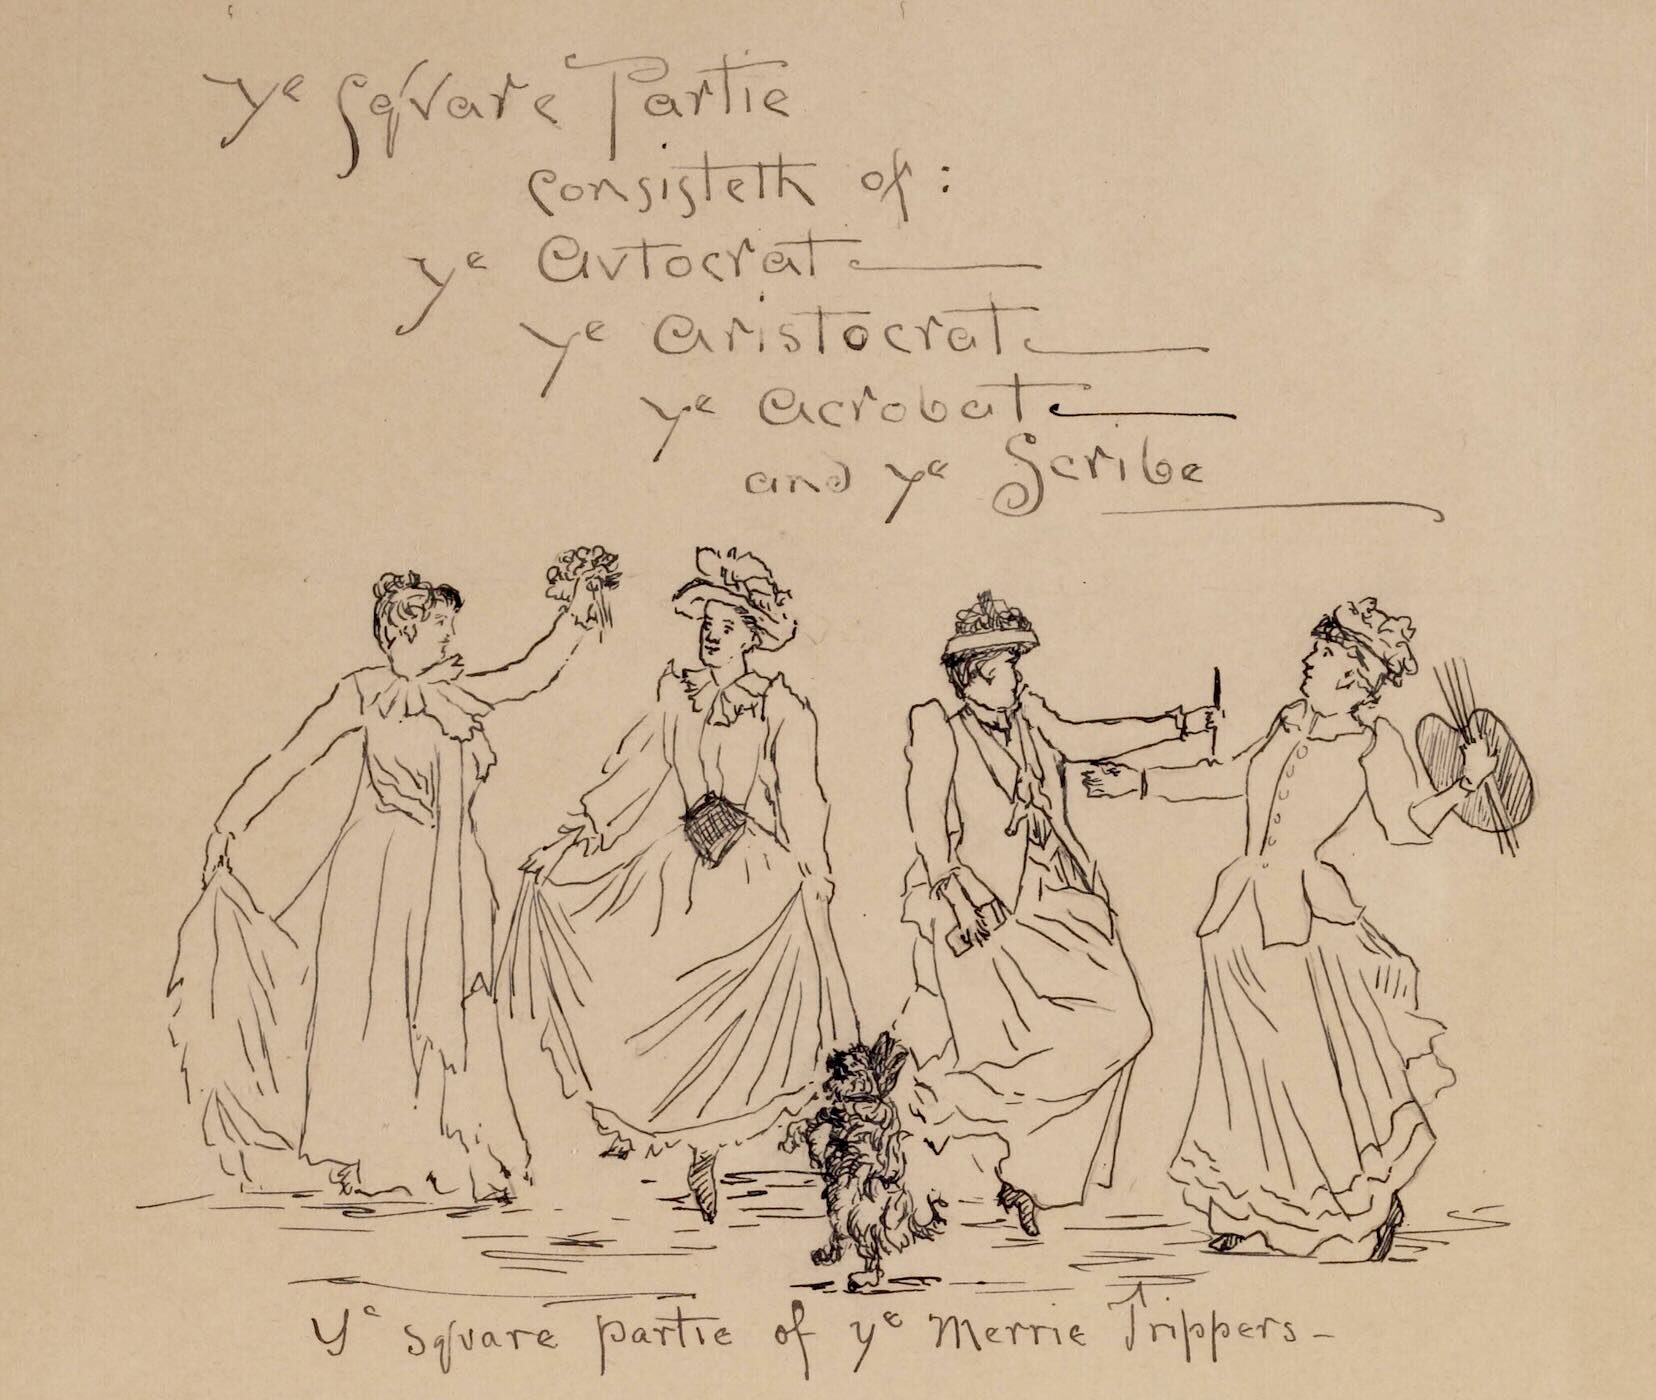 ye Sqvare Partie
consisteth of :
ye Avtocrat
ye Aristocrat
ye Acrobat
and ye Scribe
ye square partie of ye Merrie Trippers -